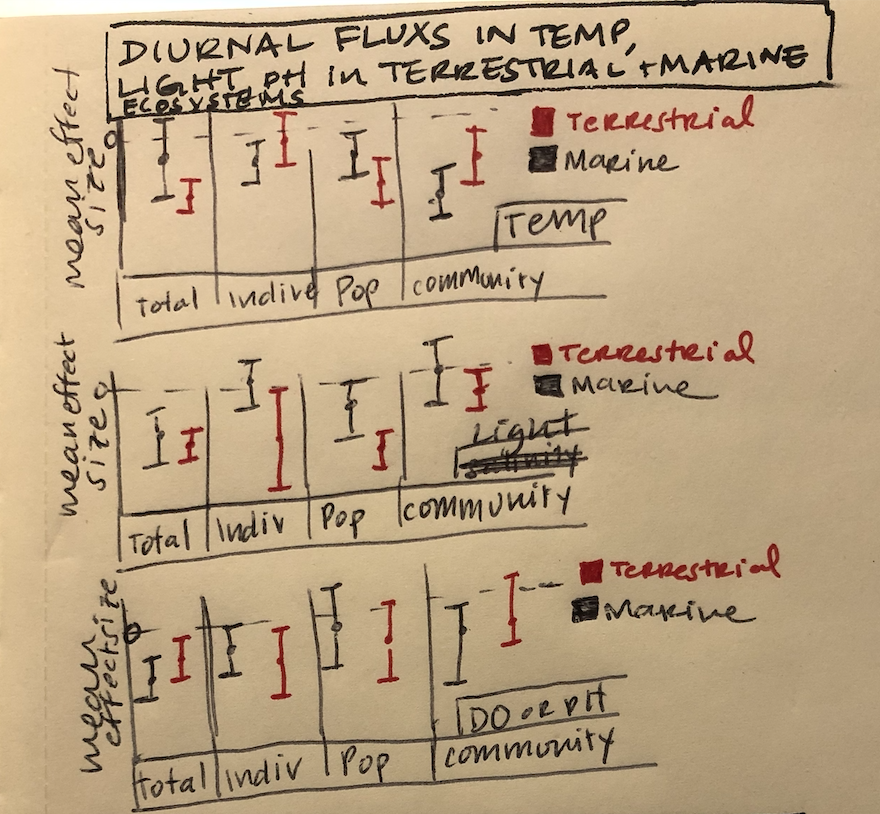 DIURNAL FLUXS IN TEMP,
LIGHT, pH in TERRESTRIAL + MARINE
ECOSYSTEMS
mean effect
size
0
Terrestrial
Marine
Temp
Total Indive Pop community
mean effect
size
0
Terrestrial
Marine
Light
salinity
Total Indiv Pop community
mean
effect size
0
Terrestrial
Marine
DO or pH
Total Indiv Pop community